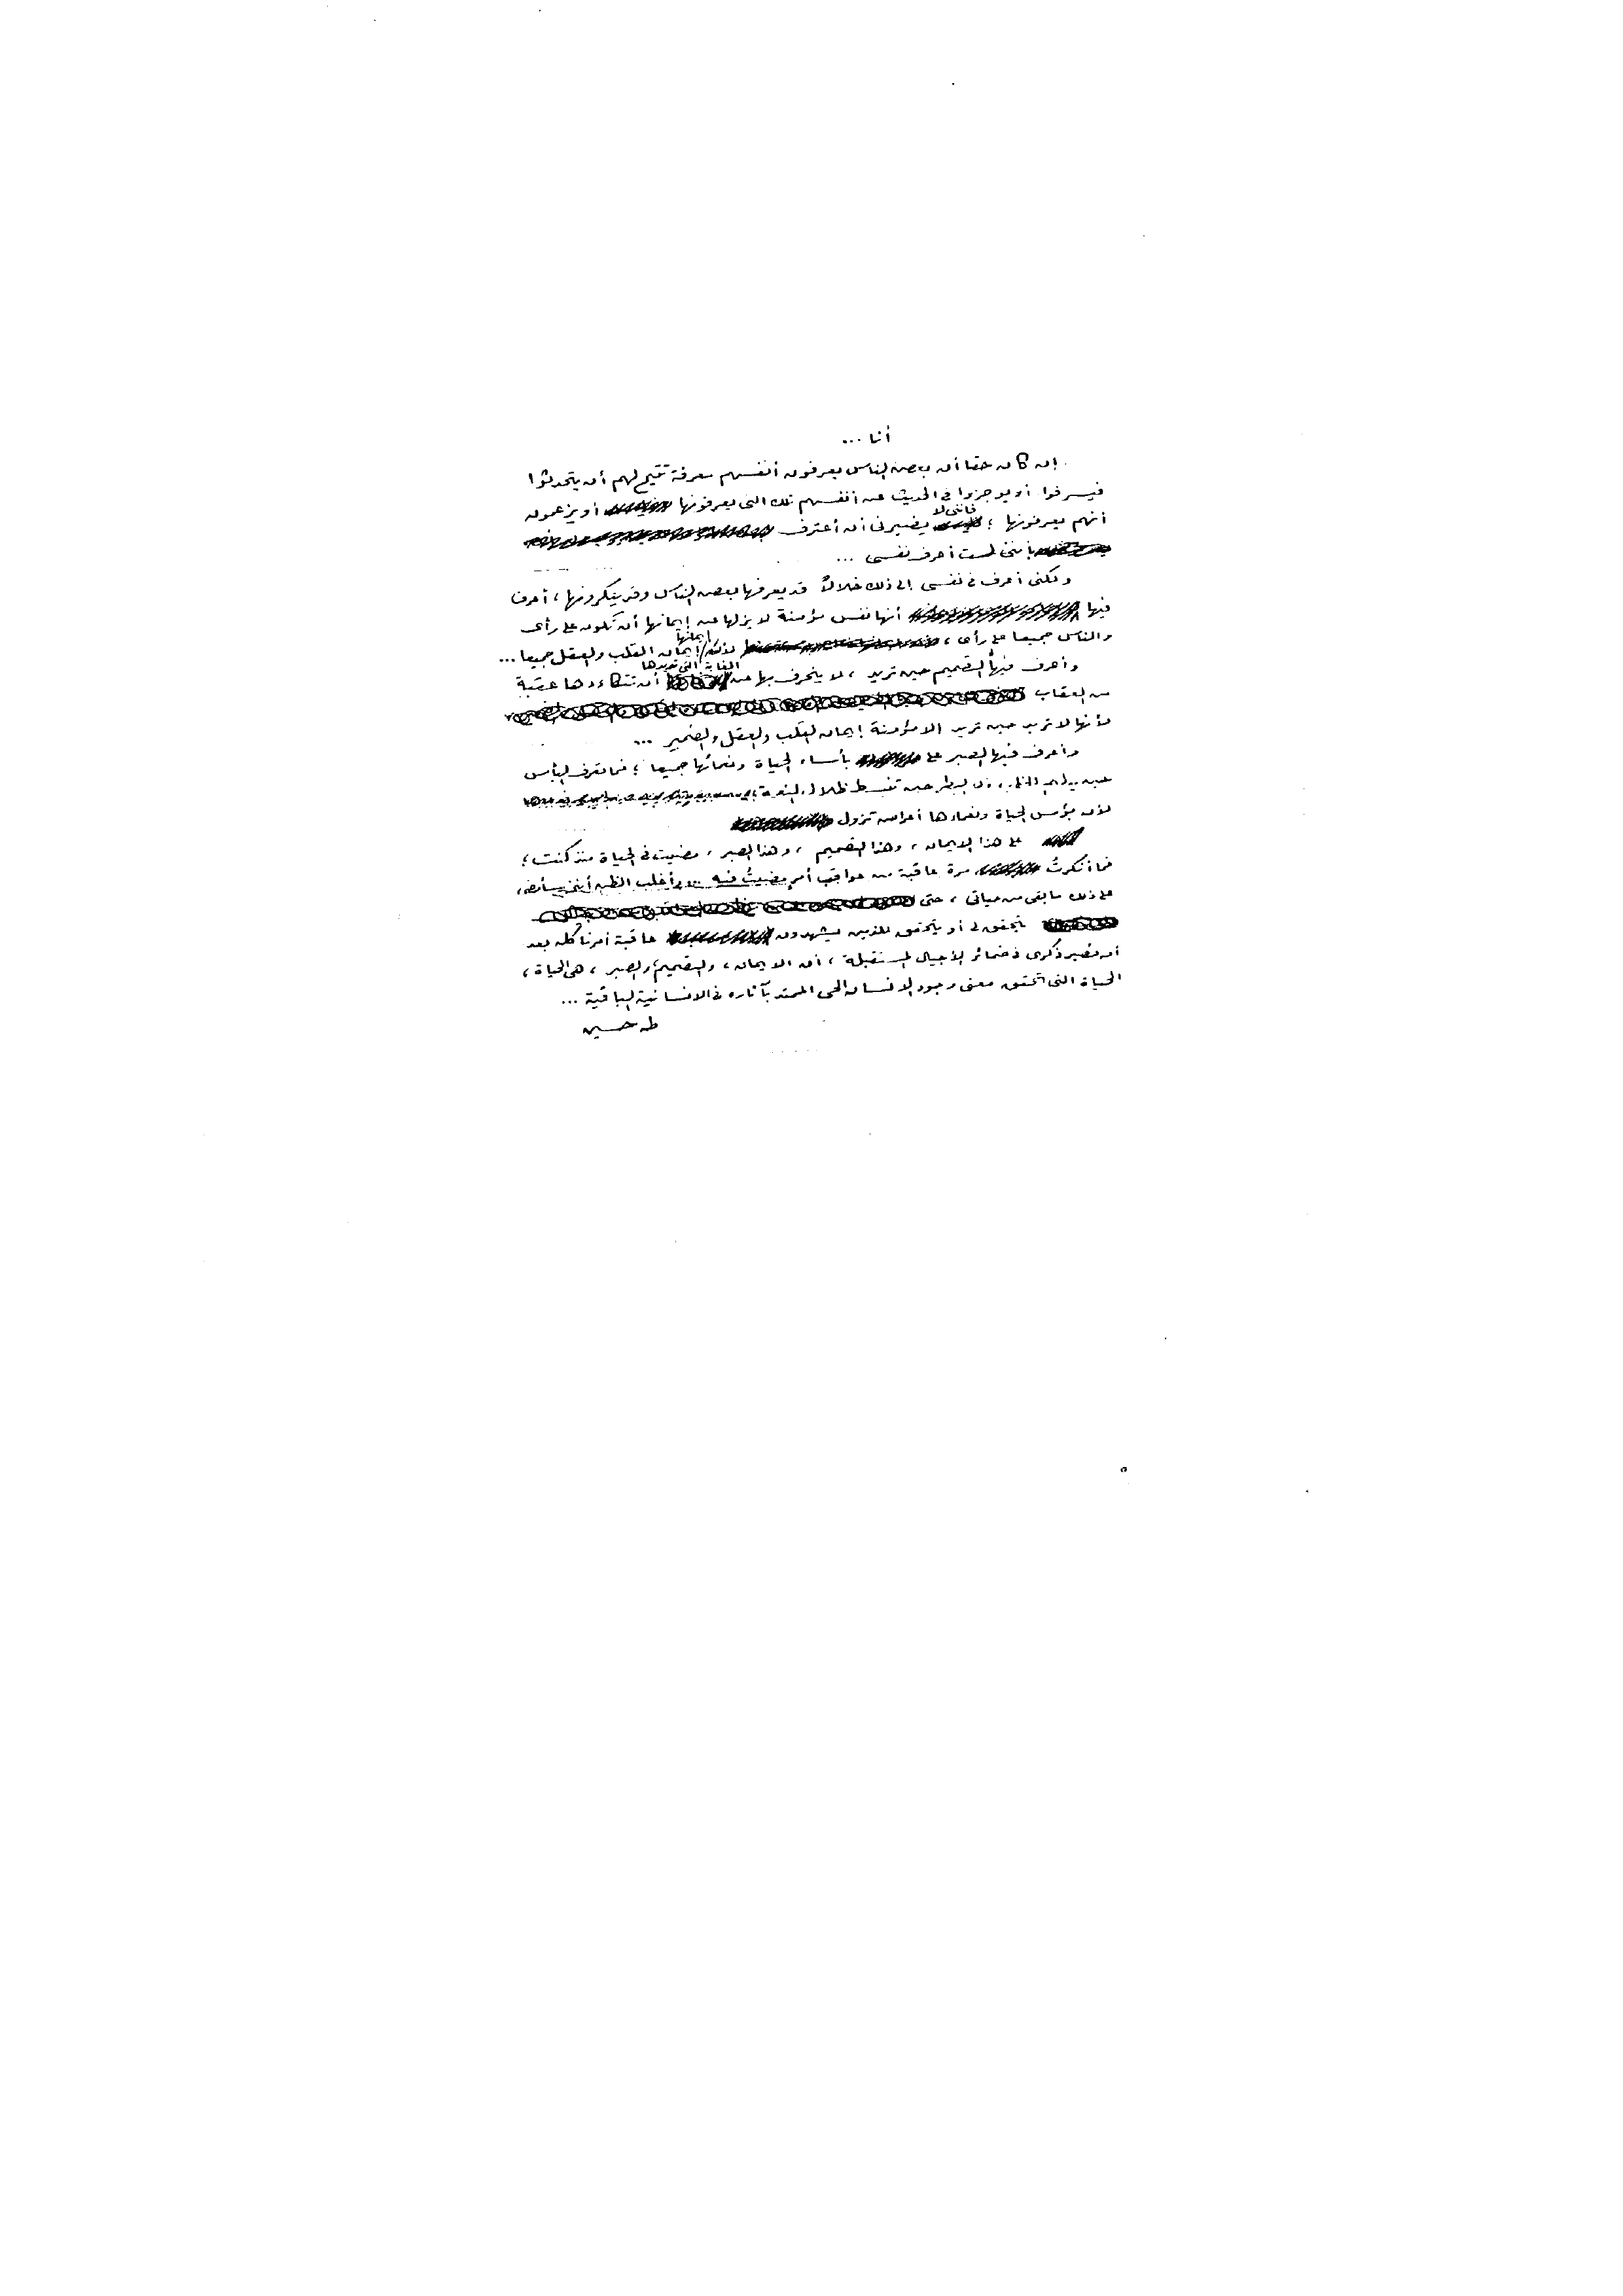 أنا ...
إن كان حقا أن بعض الناس يعرفون أنفسهم معرفة تتيح لهم أن يتحدثوا
فيسرفوا أو يوجزوا فى الحديث عن أنفسهم تلك التى يعرفونها أو يزعمون
أنهم يعرفونها ؛ فإننى لا يضيرنى أن أعترف
بأننى لست أعرف نفسى ...
ولكنى أعرف فى نفسى إلى ذلك خلالاً قد يعرفها بعض الناس وقد ينكرونها ، أعرف
فيها أنها نفس مؤمنة لا يزلها عن إيمانها أن تكون على رأى
والناس جميعا على رأى ، لأن إيمانها إيمان القلب والعقل جميعا ...
وأعرف فيها التصميم حين تريد ، لا ينحرف بها عن الغاية التى تريدها أن تتكاءدها عقبة
من العقاب
لأنها لا تريد حين تريد الا مؤمنة إيمان القلب والعقل والضمير ...
وأعرف فيها الصبر على بأساء الحياة ونعمائها جميعا ؛ فما تعرف اليأس
حين يدلهم الخطب ولا البطر حين تنبسط ظلال النعمة
لأن بؤس الحياة ونعماءها أعراض تزول
على هذا الايمان ، وهذا التصميم ، وهذا الصبر ، مضيت فى الحياة منذ كنت ؛
فما أنكرتُ مرة عاقبة من عواقب أمر مضيتُ فيه .. وأغلب الظن أننى سأمضى
على ذلك ما بقى من حياتى ، حتى
يتحقق لى أو يتحقق للذين يشهدون عاقبة أمرنا كله بعد
أن نصير ذكرى فى ضمائر الأجيال المستقبلة ، أن الايمان ، والتصميم ، والصبر ، هى الحياة ،
الحياة التى تحقق معنى وجود الإنسان الحى الممتد بآثاره فى الانسانية الباقية ...
طه حسين